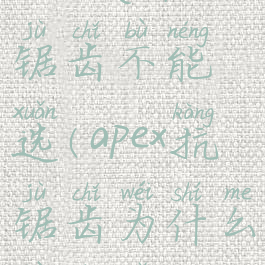 jù chǐ bù néng
锯齿不能
xuǎn kàng
选(apex抗
jù chǐ wéi shí me
锯齿为什么